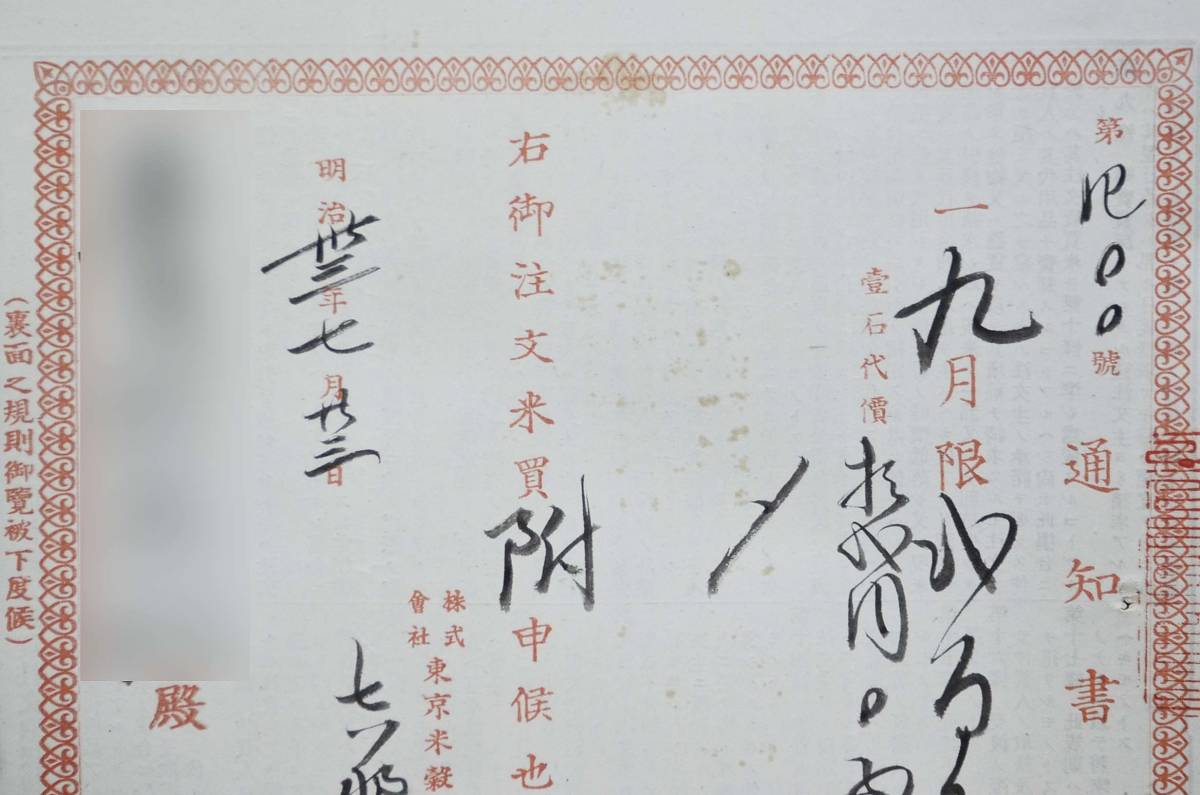 第四〇〇號
通知書
一九月限弐百
壹石代價拾弐円〇
右御注文米買附申候也
明治卅三年七月廿三日
株式會社東京米穀
七
殿
（裏面之規則御覽被下度候）